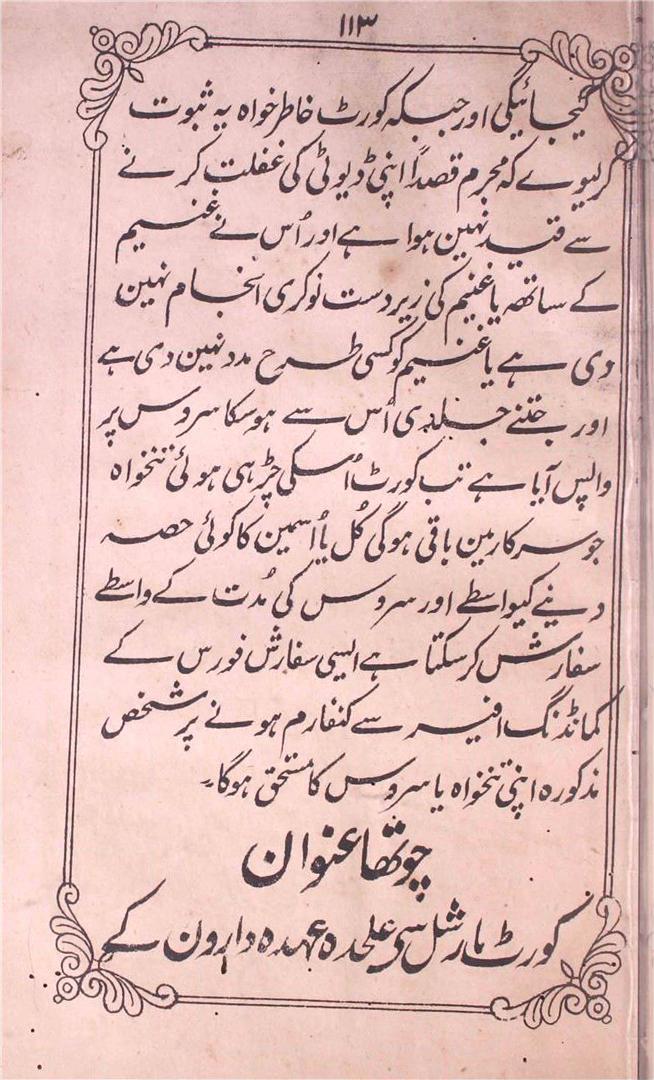 ۱۱۳
کیجائیگی اور جبکہ کورٹ خاطر خواہ یہ ثبوت
کرلیوے کہ مجرم قصداً اپنی ڈیوٹی کی غفلت کرنے
سے قید نہین ہوا ہے اور اُس نے غنیم
کے ساتھہ یا غنیم کی زیردست نوکری انجام نہین
دی ہے یا غنیم کو کسی طرح مدد نہین دی ہے
اور جتنے جلدی اُس سے ہوسکا سروس پر
واپس آیا ہے تب کورٹ اُسکی چڑہی ہوئی تنخواہ
جو سرکار مین باقی ہوگی کُل یا اُسمین کا کوئی حصہ
دینے کیواسطے اور سروس کی مُدت کے واسطے
سفارش کرسکتا ہے ایسی سفارش فورس کے
کمانڈنگ افیسر سے کنفارم ہونے پر شخص
مذکورہ اپنی تنخواہ یا سروس کا مستحق ہوگا۔
چوتھا عنوان
کورٹ مارشل سی علحدہ عہدہ دارون کے